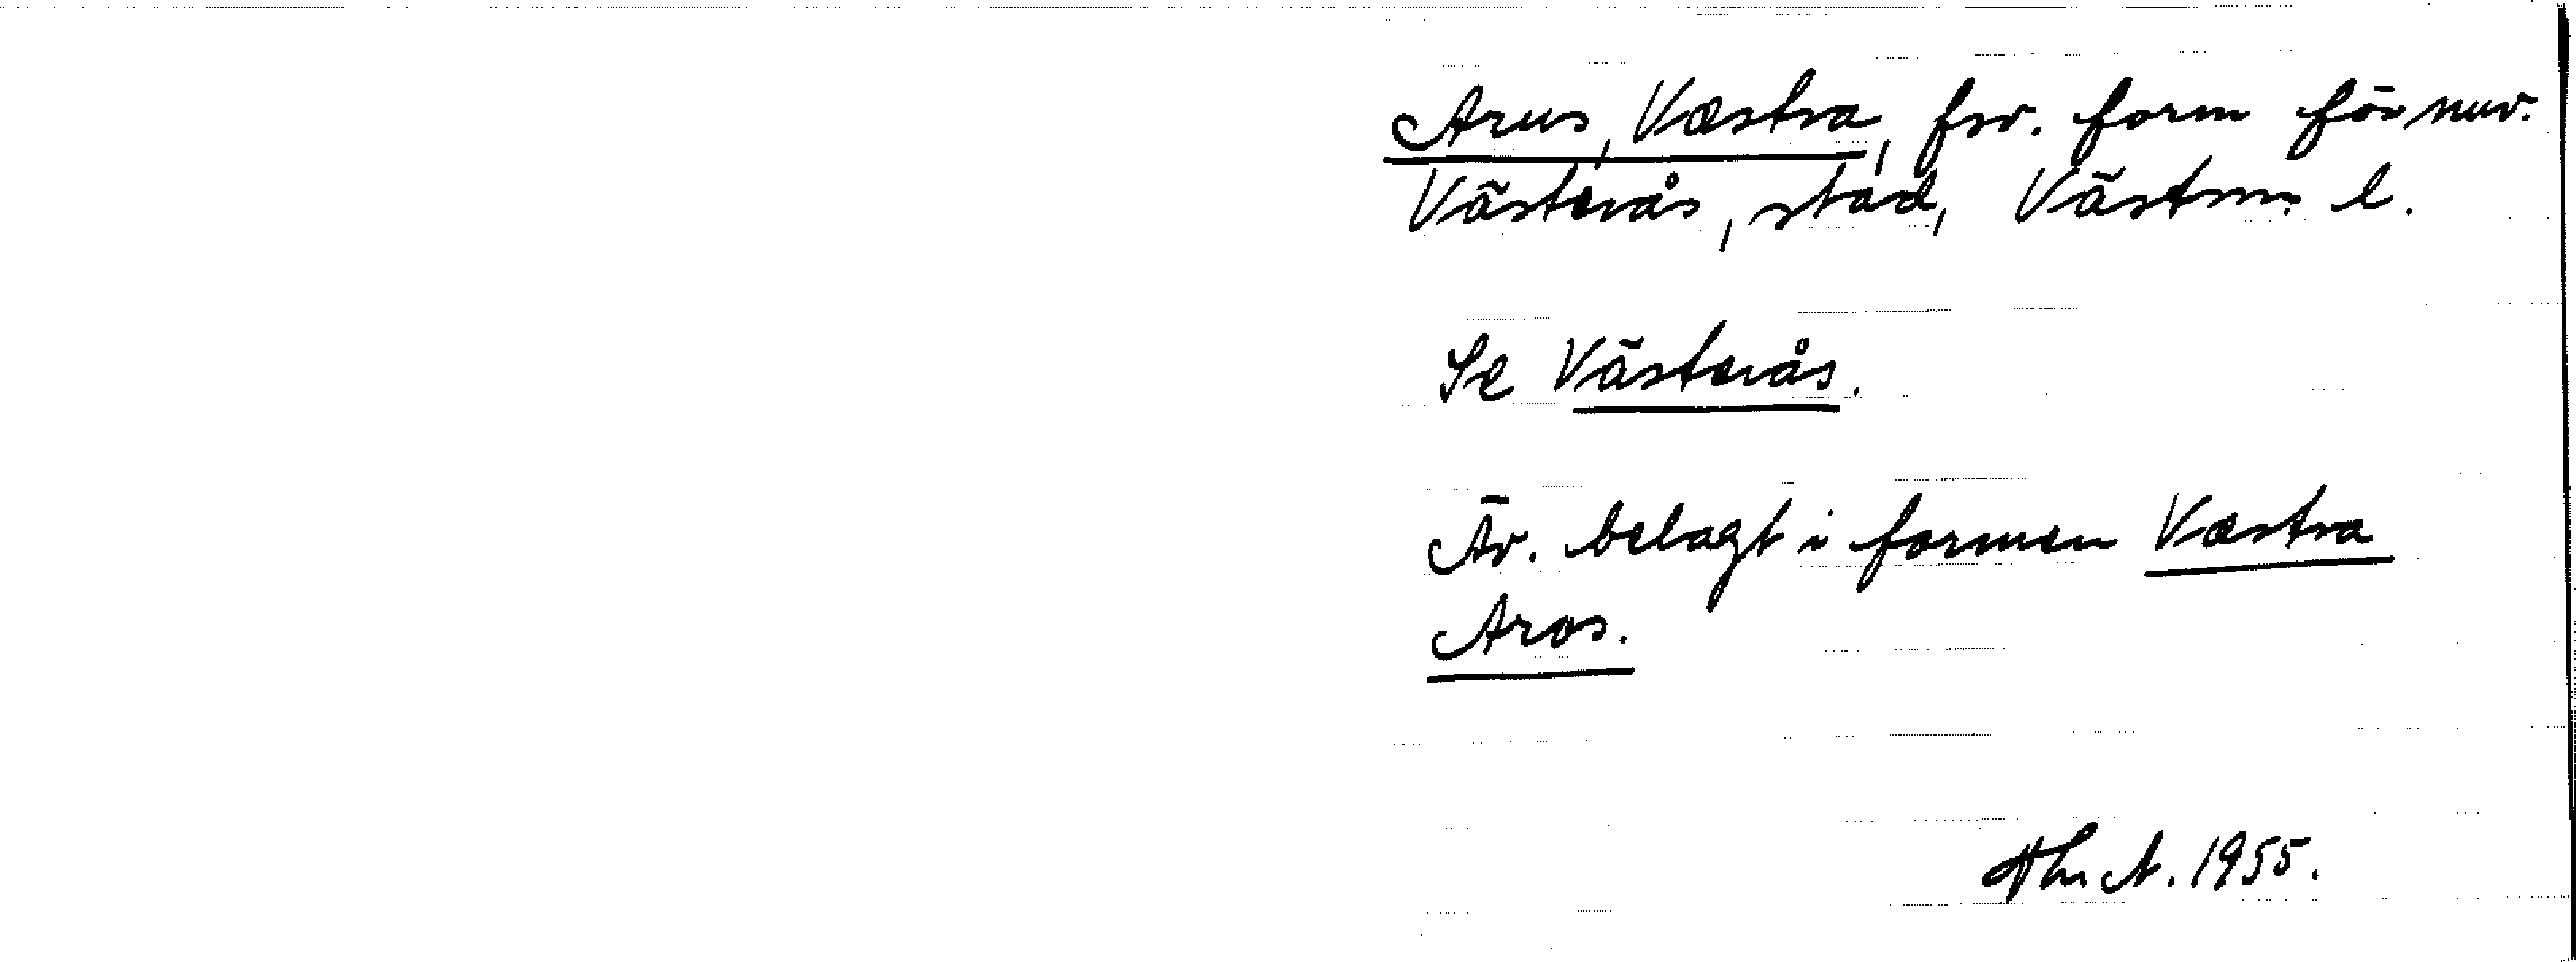 Arus, Væstra, fsv. form för nuv.
Västerås, stad, Västm. l.
Se Västerås.
Äv. belagt i formen Væstra
Aros.
1955.